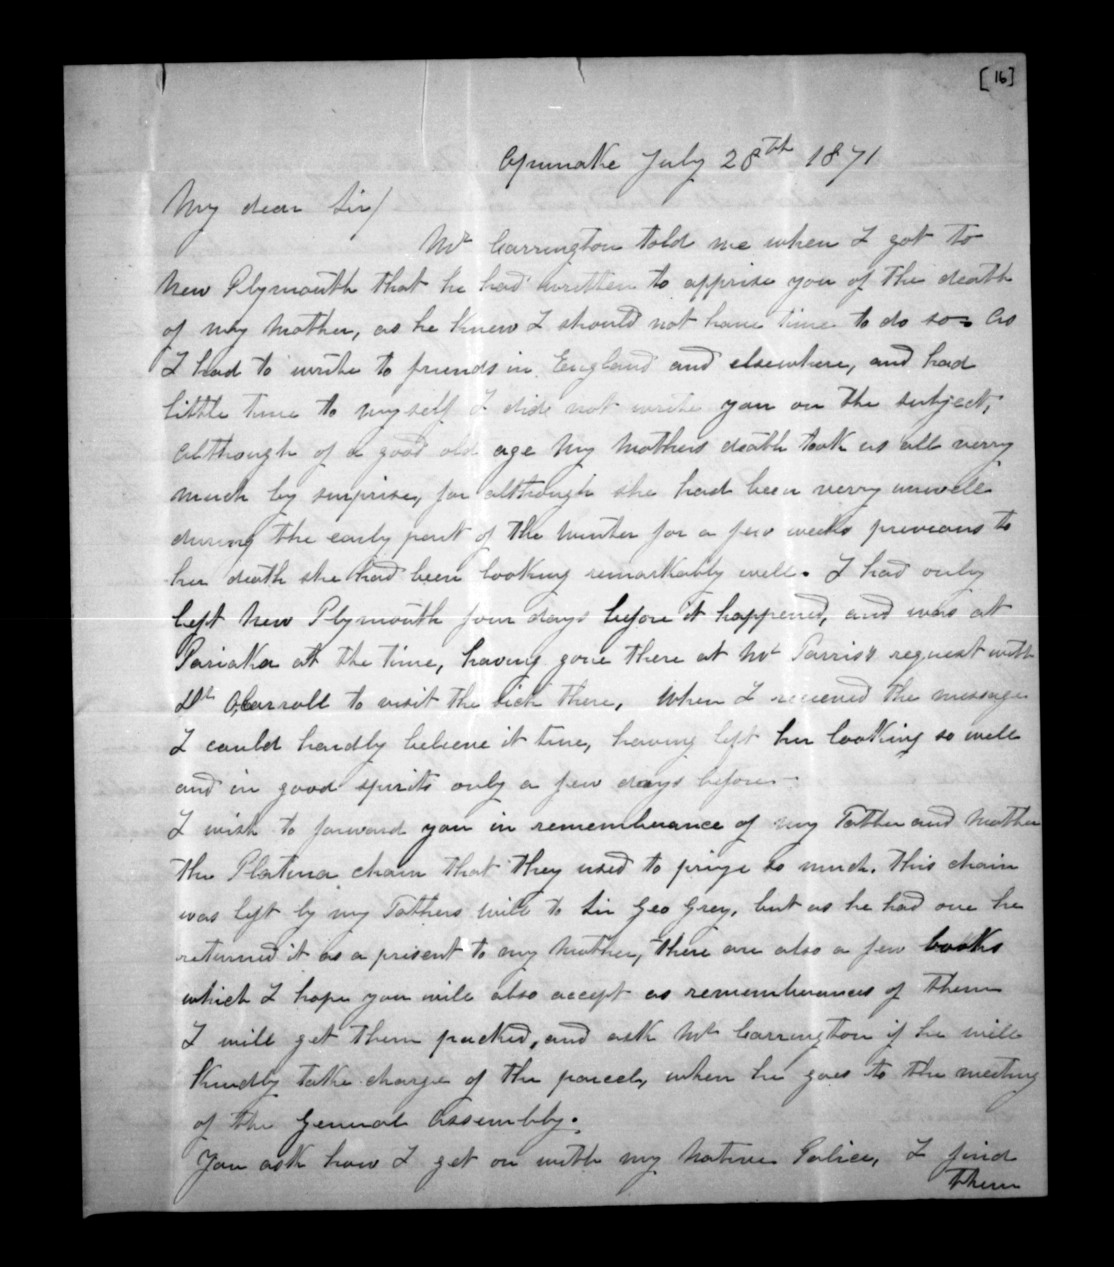 [16]
Opunake July 28th 1871
My dear Sir/
Mr Carrington told me when I got to
New Plymouth that he had written to apprise you of the death
of my Mother, as he knew I should not have time to do so. As
I had to write to friends in England and elsewhere, and had
little time to myself I did not write you on the subject,
although of a good old age my Mothers death took us all verry
much by surprise, for although she had been verry unwell
during the early part of the winter for a few weeks previous to
her death she had been looking remarkably well. I had only
left New Plymouth four days before it happened, and was at
Pariaka at the time, having gone there at Mr Parris's request with
Dr OCarroll to visit the sick there, When I received the message
I could hardly believe it true, having left her looking so well
and in good spirits only a few days before.
I wish to forward you in remembrance of my Father and Mother
the Platina chain that they used to prize so much. this chain
was left by my Fathers will to Sir Geo Grey, but as he had one he
returned it as a present to my Mother, there are also a few books
which I hope you will also accept as remembrances of them
I will get them packed, and ask Mr Carrington if he will
kindly take charge of the parcel, when he goes to the meeting
of the General Assembly.
You ask how I get on with my Native Police, I find
them